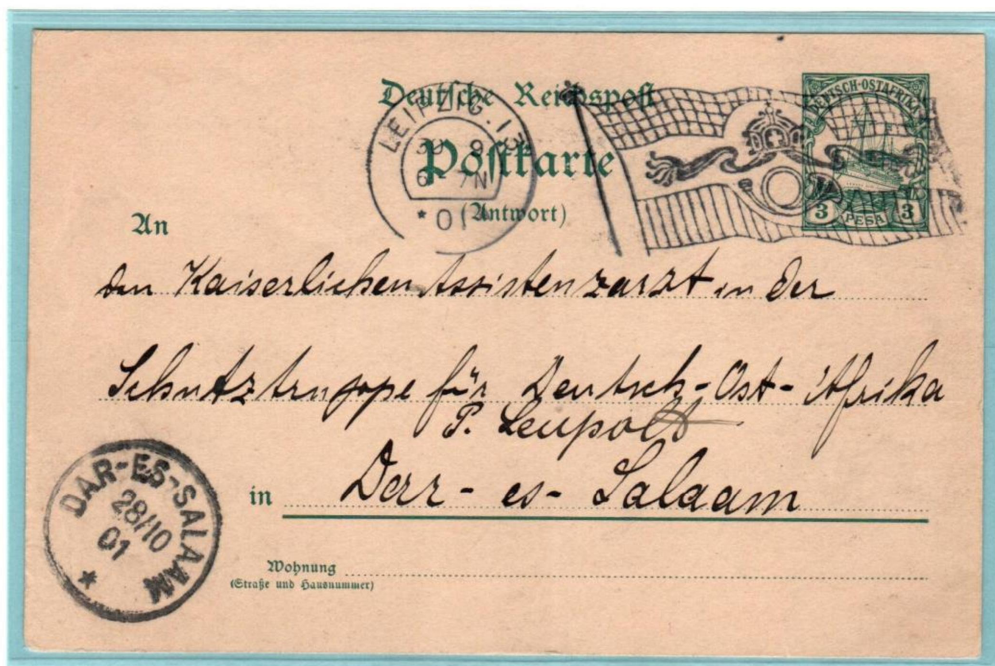 Deutsche Reichspost
Postkarte
(Antwort)
LEIPZIG. 13
30 9
6-7N
* 01
DEUTSCH-OSTAFRIKA
3 PESA 3
An
den Kaiserlichen Assistenzarzt in der
Schutztruppe für Deutsch-Ost-Afrika
P. Leupold
in Darr-es-Salaam
Wohnung
(Straße und Hausnummer)
DAR-ES-SALAAM
28/10
01
*